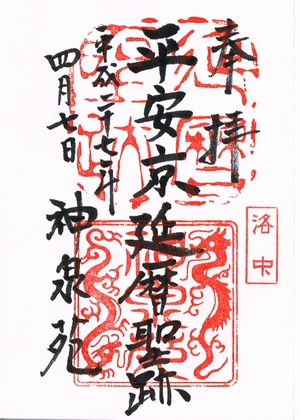 奉拝
洛中
平安京延暦聖跡
平成二十七年
四月七日
神泉苑